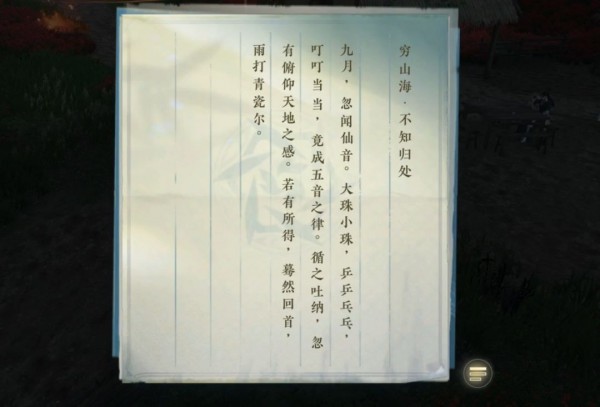 穷山海·不知归处
九月，忽闻仙音。大珠小珠，乒乒乓乓，
叮叮当当，竟成五音之律。循之吐纳，忽
有俯仰天地之感。若有所得，蓦然回首，
雨打青瓷尔。